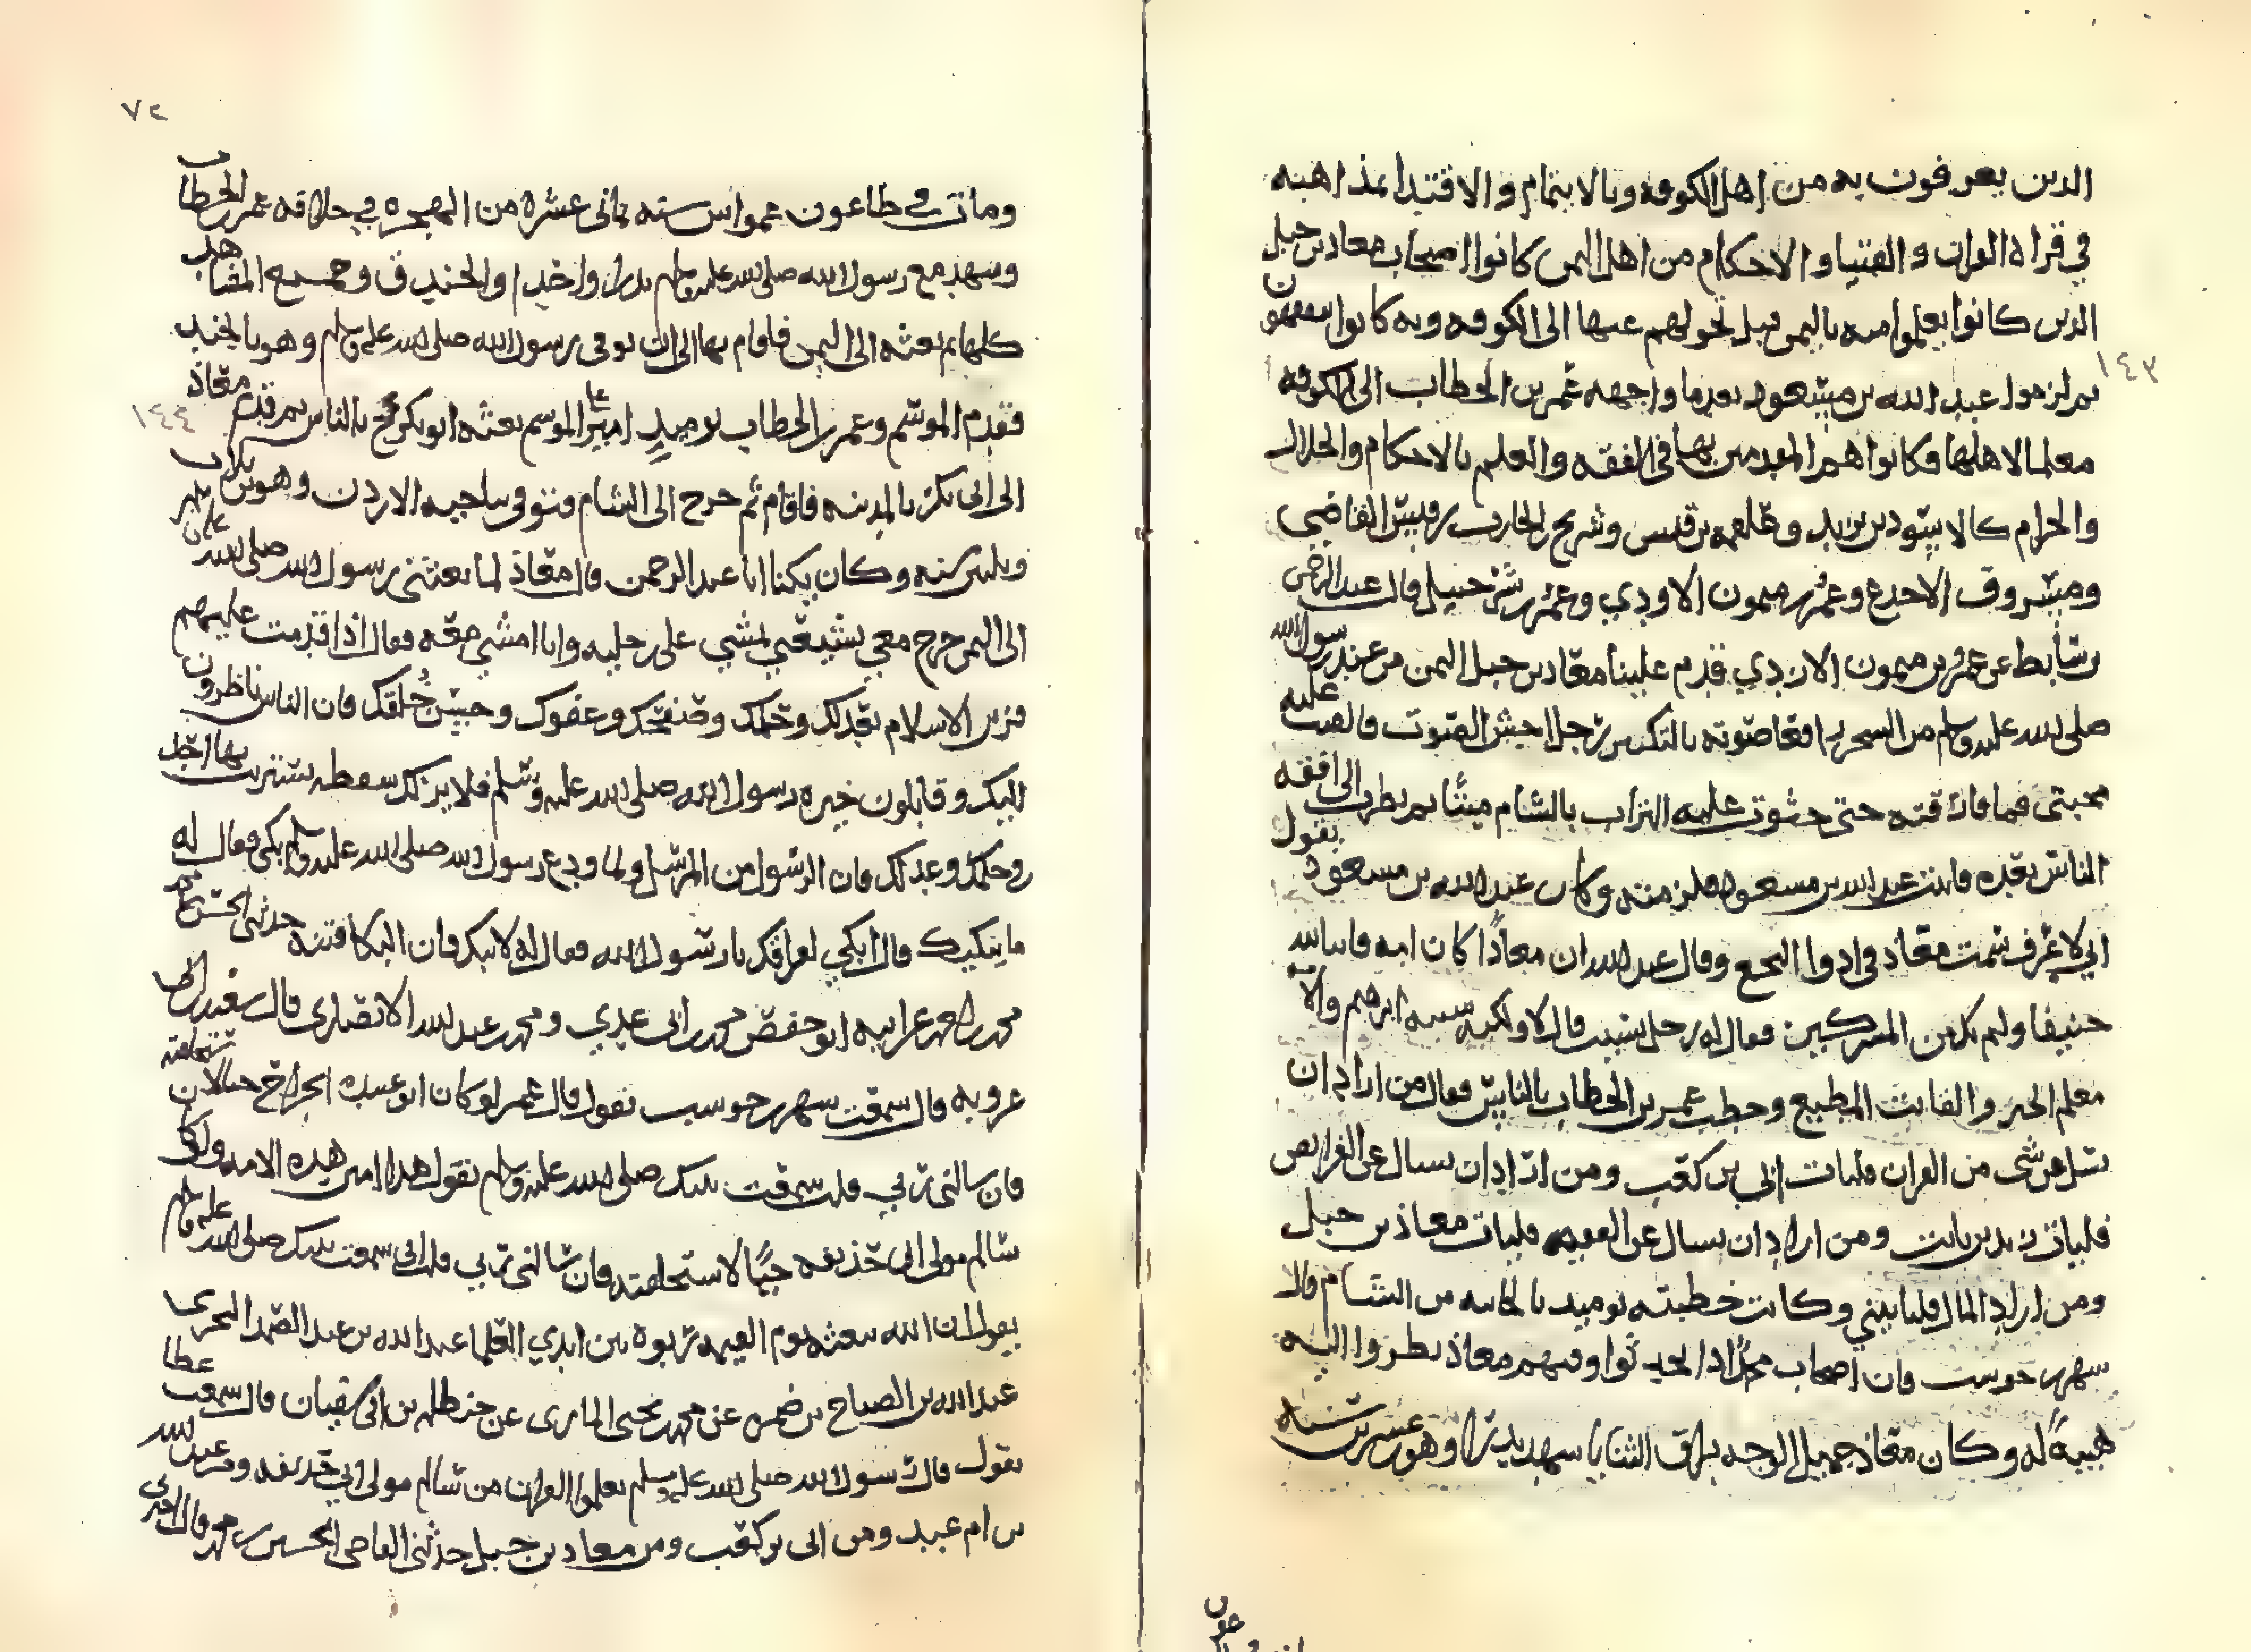 الذين يعرفون به من اهل الكوفه وبالايتمام والاقتدا بمذاهبه
في قراة القران والفتيا والاحكام من اهل اليمن كانوا اصحاب معاذ بن جبل
الذين كانوا تعلموا منه باليمن قبل تحولهم عنها الى الكوفه وبه كانوا يتفقهون
ثم لزموا عبد الله بن مسعود بعدما واجهه عمر بن الخطاب الى الكوفه
١٤٣
معلما لاهلها وكانوا هم المقدمين بها في الفقه والعلم بالاحكام والحلال
والحرام كالاسود بن يزيد وعلقمه بن قيس وشريح بن الحارث بن قيس القاضي
ومسروق بن الاجدع وعمرو بن ميمون الاودي وعمرو بن شرحبيل قال عبد الرحمن
بن سابط عن عمرو بن ميمون الاودي قدم علينا معاذ بن جبل اليمن من عند رسول الله
صلى الله عليه وسلم من السحر رافعا صوته بالتكبير رجل اجش الصوت فالقيت عليه
محبتي فما فارقته حتى حثوت عليه التراب بالشام ميتا ثم نظرت الى افقه
الناس بعده فاتيت عبد الله بن مسعود فلزمته وكان عبد الله بن مسعود يقول
اني لاعرف سمت معاذ في ادوا النخع وقال عبد الله ان معاذا كان امه قانتا لله
حنيفا ولم يك من المشركين فقال له رجل نسيت قال لا ولكنه شبيه ابرهيم والامه
معلم الخير والقانت المطيع وخطب عمر بن الخطاب بالناس فقال من اراد ان
يسل عن شي من القران فليات ابي بن كعب ومن اراد ان يسال عن الفرايض
فليات زيد بن ثابت ومن اراد ان يسال عن الفقه فليات معاذ بن جبل
ومن اراد المال فلياتيني وكانت خطبته يوميد بالجابيه من الشام قال
شهر بن حوشب كان اصحاب محمد اذا تحدثوا وفيهم معاذ نظروا اليه
هيبة له وكان معاذ جميل الوجه براق الثنايا شهد بدرا وهو بن عشرين سنه
٧٢
ومات في طاعون عمواس سنه ثماني عشره من الهجره في خلافه عمر بن الخطاب
وشهد مع رسول الله صلى الله عليه وسلم بدرا واحدا والخندق وجميع المشاهد
كلها ثم بعثه الى اليمن فاقام بها الى ان توفي رسول الله صلى الله عليه وسلم وهو بالجند
فقدم الموسم وعمر بن الخطاب يوميذ امير على الموسم بعثه ابو بكر يحج بالناس ثم قدم معاذ
١٤٤
الى ابي بكر بالمدينه فاقام ثم خرج الى الشام فتوفي بناحيه الاردن وهو بن ثلاث
وثلثين سنه وكان يكنا ابا عبد الرحمن قال معاذ لما بعثني رسول الله صلى الله عليه وسلم
الى اليمن خرج معي يشيعني يمشي على رجليه وانا امشي معه فقال اذا قدمت عليهم
فزين الاسلام بعدلك وحلمك وصفحك وعفوك وحسن خلقك فان الناس ناظرون
اليك وقايلون خيره رسول الله صلى الله عليه وسلم فلا يرى لك سقطه يستريب بها احد
حلمك وعدلك فان الرسول من المرسل ولما ودع رسول الله صلى الله عليه وسلم بكى فقال له
ما يبكيك قال ابكي لفراقك يا رسول الله فقال له لا تبك فان البكا فتنه حدثني الحسن بن
محمد بن احمد عن ابيه ابو حفص محمد بن ابي عدي ومحمد بن عبد الله الانصاري قال سعيد بن ابي
عروبه قال سمعت شهر بن حوشب يقول قال عمر لو كان ابو عبيده بن الجراح حيا لاستخلفته
فان سالني ربي قلت سمعت نبيك صلى الله عليه وسلم يقول هذا امين هذه الامه ولو كان
سالم مولى ابي حذيفه حيا لاستخلفته فان سالني ربي قلت اني سمعت نبيك صلى الله عليه وسلم
يقول ان الله يبعثه يوم القيمه رتوة بين ايدي العلما عبد الله بن عبد الصمد
عبد الله بن الصباح بن ضمره عن محمد بن يحيى المازني عن حنظله بن ابي سفيان قال سمعت عطا
يقول قال رسول الله صلى الله عليه وسلم تعلموا القران من سالم مولى ابي حذيفه ومن عبد الله
بن ام عبد ومن ابي بن كعب ومن معاذ بن جبل حدثني القاضي الحسين بن محمد قال